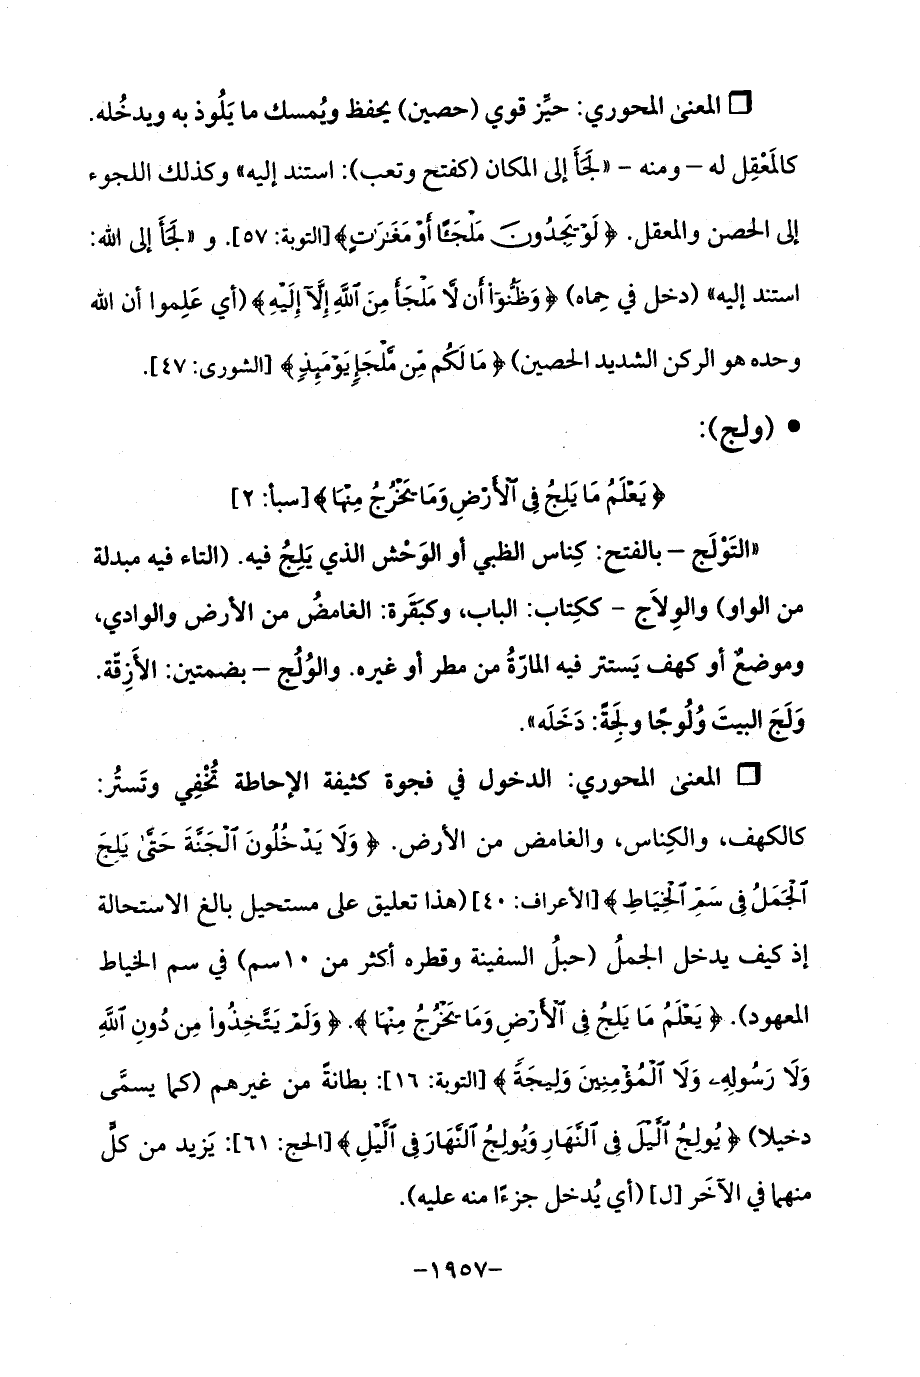 ❒ المعنىٰ المحوري: حيِّز قوي (حصين) يحفظ ويُمسك ما يَلُوذ به ويدخُله.
كالمَعْقِل له – ومنه – «لَجَأَ إلى المكان (كفتح وتعب): استند إليه» وكذلك اللجوء
إلى الحصن والمعقل. ﴿لَوْ يَجِدُونَ مَلْجَـًٔا أَوْ مَغَٰرَٰتٍ﴾ [التوبة: ٥٧]. و «لَجَأَ إلى الله:
استند إليه» (دخل في حِماه) ﴿وَظَنُّوٓا۟ أَن لَّا مَلْجَأَ مِنَ ٱللَّهِ إِلَّآ إِلَيْهِ﴾ (أي عَلِموا أن الله
وحده هو الركن الشديد الحصين) ﴿مَا لَكُم مِّن مَّلْجَإٍ يَوْمَئِذٍ﴾ [الشورى: ٤٧].
• (ولج):
﴿يَعْلَمُ مَا يَلِجُ فِى ٱلْأَرْضِ وَمَا يَخْرُجُ مِنْهَا﴾ [سبأ: ٢]
«التَوْلَج – بالفتح: كِناس الظبي أو الوَحْش الذي يَلِجُ فيه. (التاء فيه مبدلة
من الواو) والوِلاَج – ككِتاب: الباب، وكبَقَرة: الغامضُ من الأرض والوادي،
وموضعٌ أو كهف يَستتر فيه المارّةُ من مطر أو غيره. والوُلُج – بضمتين: الأَزِقّة.
وَلَجَ البيتَ وُلُوجًا ولِجَةً: دَخَلَه».
❒ المعنىٰ المحوري: الدخول في فجوة كثيفة الإحاطة تُخْفِي وتَستُر:
كالكهف، والكِناس، والغامض من الأرض. ﴿وَلَا يَدْخُلُونَ ٱلْجَنَّةَ حَتَّىٰ يَلِجَ
ٱلْجَمَلُ فِى سَمِّ ٱلْخِيَاطِ﴾ [الأعراف: ٤٠] (هذا تعليق على مستحيل بالغ الاستحالة
إذ كيف يدخل الجملُ (حبلُ السفينة وقطره أكثر من ١٠سم) في سم الخياط
المعهود). ﴿يَعْلَمُ مَا يَلِجُ فِى ٱلْأَرْضِ وَمَا يَخْرُجُ مِنْهَا﴾. ﴿وَلَمْ يَتَّخِذُوا۟ مِن دُونِ ٱللَّهِ
وَلَا رَسُولِهِۦ وَلَا ٱلْمُؤْمِنِينَ وَلِيجَةً﴾ [التوبة: ١٦]: بطانةً من غيرهم (كما يسمَّى
دخيلا) ﴿يُولِجُ ٱلَّيْلَ فِى ٱلنَّهَارِ وَيُولِجُ ٱلنَّهَارَ فِى ٱلَّيْلِ﴾ [الحج: ٦١]: يَزيد من كلٍّ
منهما في الآخَر [ل] (أي يُدخل جزءًا منه عليه).
-١٩٥٧-